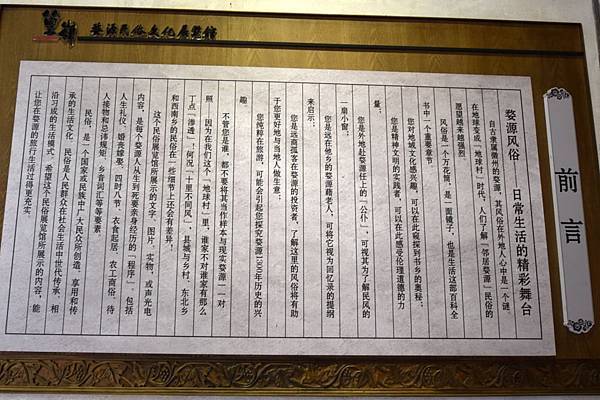 篁岭
婺源民俗文化展览馆
前言
婺源风俗 日常生活的精彩舞台
自古隶属徽州的婺源，其风俗在外地人心中是一个谜，
在地球变成「地球村」时代，人们了解「邻居婺源」民俗的
愿望越来越强烈。
风俗是一个万花筒，是一面镜子，也是生活这部百科全
书中一个重要章节。
您对地域文化感兴趣，可以在此窥探到书乡的奥秘。
您是精神文明的实践者，可以在此感受伦理道德的力
量；
您是外地赴婺源任上的「公仆」，可视其为了解民风的一
扇小窗；
您是远在他乡的婺源藉老人，可将它视为回忆录的提纲
来启示；
您是远商孤客在婺源的投资者，了解这里的风俗将有助
于您更好地与当地人做生意；
您纯粹在旅游，可能会引起您探究婺源1300年历史的兴
趣。
不管您是谁，都不要将其当作样本与现实婺源一一对
照，因为在我们这个「地球村」里，谁家不对谁家有那么一
丁点「渗透」！何况「十里不同风」，县城与乡村、东北乡
和西南乡的民俗在一些细节上还会有差异！
这个民俗展览馆所展示的文字、图片、实物，或声光电
内容，是每个婺源人从生到死要亲身经历的「程序」。包括
人生礼仪、婚丧嫁娶、四时八节、衣食起居、农工商俗、待
人接物和总讳规矩、乡音词汇等等要素。
民俗，是一个国家或民族中广大民众所创造、享用和传
承的生活文化。民俗是人民群众在社会生活中世代传承、相
沿习成的生活模式，希望这个民俗展览馆所展示的内容，能
让您在婺源的旅行生活过得更充实。